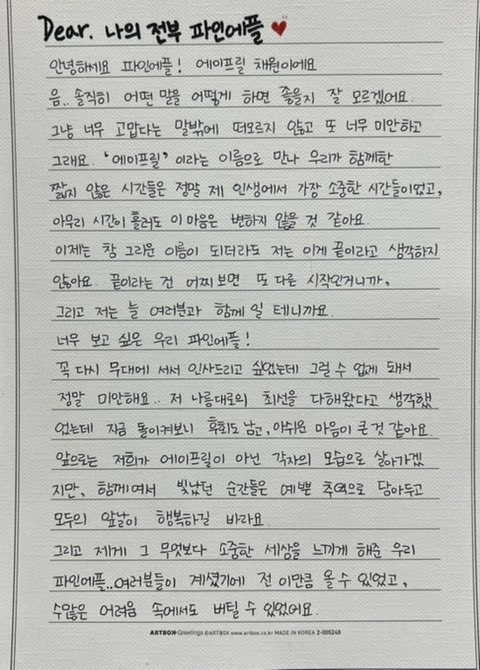 Dear. 나의 전부 파인에플 ♥
안녕하세요 파인에플! 에이프릴 채원이에요
음.. 솔직히 어떤 말을 어떻게 하면 좋을지 잘 모르겠어요.
그냥 너무 고맙다는 말밖에 떠오르지 않고 또 너무 미안하고
그래요. '에이프릴' 이라는 이름으로 만나 우리가 함께한
짧지 않은 시간들은 정말 제 인생에서 가장 소중한 시간들이었고,
아무리 시간이 흘러도 이 마음은 변하지 않을 것 같아요.
이제는 참 그리운 이름이 되더라도 저는 이게 끝이라고 생각하지
않아요. 끝이라는 건 어찌보면 또 다른 시작인거니까,
그리고 저는 늘 여러분과 함께 일 테니까요.
너무 보고 싶은 우리 파인에플!
꼭 다시 무대에 서서 인사드리고 싶었는데 그럴 수 없게 돼서
정말 미안해요.. 저 나름대로의 최선을 다해왔다고 생각했
었는데 지금 돌이켜보니 후회도 남고, 아쉬운 마음이 큰 것 같아요.
앞으로는 저희가 에이프릴이 아닌 각자의 모습으로 살아가겠
지만, 함께여서 빛났던 순간들은 예쁜 추억으로 담아두고
모두의 앞날이 행복하길 바라요.
그리고 제게 그 무엇보다 소중한 세상을 느끼게 해준 우리
파인에플..여러분들이 계셨기에 전 이만큼 올 수 있었고,
수많은 어려움 속에서도 버틸 수 있었어요.
ARTBOX-Greetings ©ARTBOX www.artbox.co.kr MADE IN KOREA 2-005248